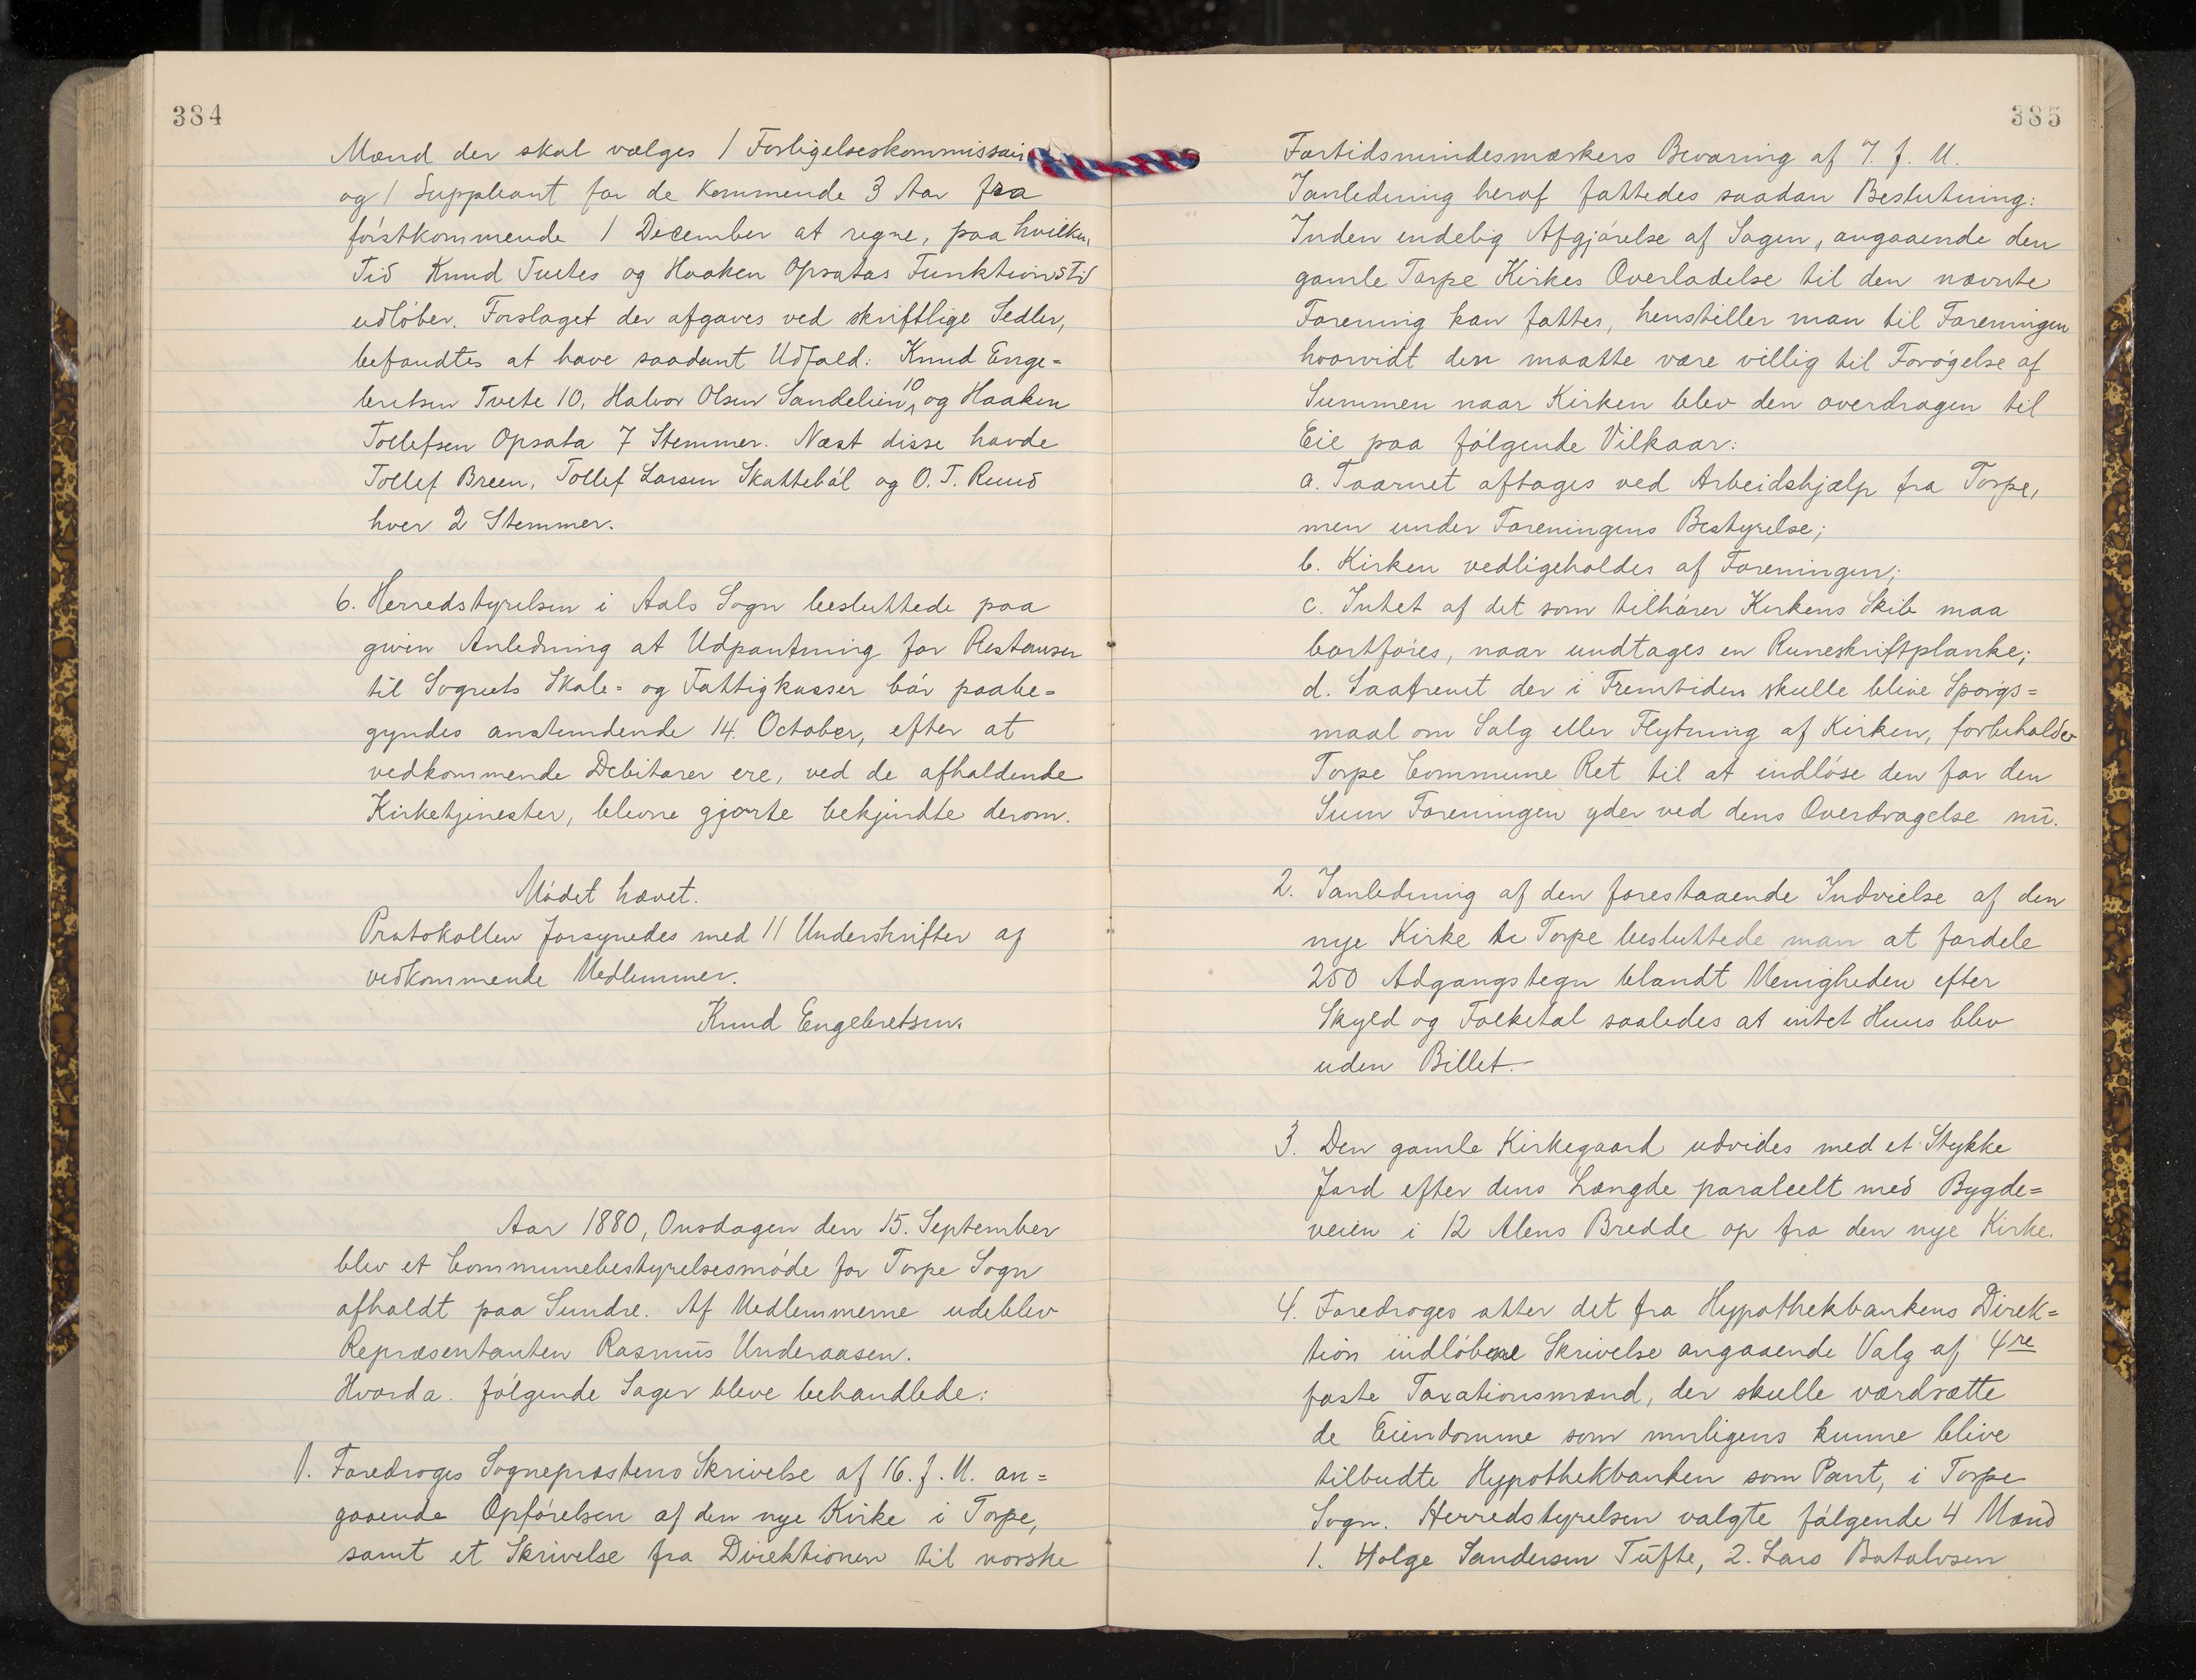 384
Mænd der skal vælges 1 Forligelseskommissair
og 1 Suppleant for de kommende 3 Aar fra
förstkommende 1 December at regne, paa hvilken
Tid Knud Tvetes og Haaken Opsatas Funktionstid
udlöber. Forslaget der afgaves ved skriftlige Sedler,
befandtes at have saadant Udfald: Knud Enge=
bretsen Tvete 10, Halvor Olsen Sandelien 10, og Haaken
Tollefsen Opsata 7 Stemmer. Næst disse havde
Tollef Breen, Tollef Larsen Skattebòl og O. T. Ruud
hver 2 Stemmer.
6. Herredstyrelsen i Aals Sogn besluttede paa
given Anledning at Udpantning for Restanser
til Sognets Skole= og Fattigkasser bör paabe=
gyndes anstundende 14. October, efter at
vedkommende Debitorer ere, ved de afholdende
Kirketjenester, blevne gjorte bekjendte derom.
Mödet hævet.
Protokollen forsynedes med 11 Underskrifter af
vedkommende Medlemmer.
Knud Engebretsen.
Aar 1880, Onsdagen den 15. September
blev et Communebestyrelsesmöde for Torpe Sogn
afholdt paa Sundre. Af Medlemmerne udeblev
Repræsentanten Rasmus Underaasen.
Hvorda. fölgende Sager bleve behandlede:
1. Foredroges Sognepræstens Skrivelse af 16. f. M. an=
gaaende Opförelsen af den nye Kirke i Torpe,
samt et Skrivelse fra Direktionen til norske
385
Fortidsmindesmærkers Bevaring af 7. f. M.
Ianledning heraf fattedes saadan Beslutning:
Inden endelig Afgjörelse af Sagen, angaaende den
gamle Torpe Kirkes Overladelse til den nævnte
Forening kan fattes, henstiller man til Foreningen
hvorvidt den maatte være villig til Forögelse af
Summen naar Kirken blev den overdragen til
Eie paa fölgende Vilkaar:
a. Taarnet aftages ved Arbeidshjælp fra Torpe,
men under Foreningens Bestyrelse;
b. Kirken vedligeholdes af Foreningen;
c. Intet af det som tilhörer Kirkens Skib maa
bortföres, naar undtages en Runeskriftplanke;
d. Saafremt der i Fremtiden skulle blive Spörgs=
maal om Salg eller Flytning af Kirken, forbeholder
Torpe Commune Ret til at indlöse den for den
Sum Foreningen yder ved dens Overdragelse nu.
2. Ianledning af den forestaaende Indvielse af den
nye Kirke i Torpe besluttede man at fordele
250 Adgangstegn blandt Menigheden efter
Skyld og Folketal saaledes at intet Huus blev
uden Billet.
3. Den gamle Kirkegaard udvides med et Stykke
Jord efter dens Længde paraleelt med Bygde=
veien i 12 Alens Bredde op fra den nye Kirke.
4. Foredroges atter det fra Hypothekbankens Direk=
tion indlöbne Skrivelse angaaende Valg af 4re
faste Taxationsmænd, der skulle værdsætte
de Eiendomme som muligens kunne blive
tilbudte Hypothekbanken som Pant, i Torpe
Sogn. Herredstyrelsen valgte fölgende 4 Mænd
1. Holge Sandersen Tufte, 2. Lars Botolvsen